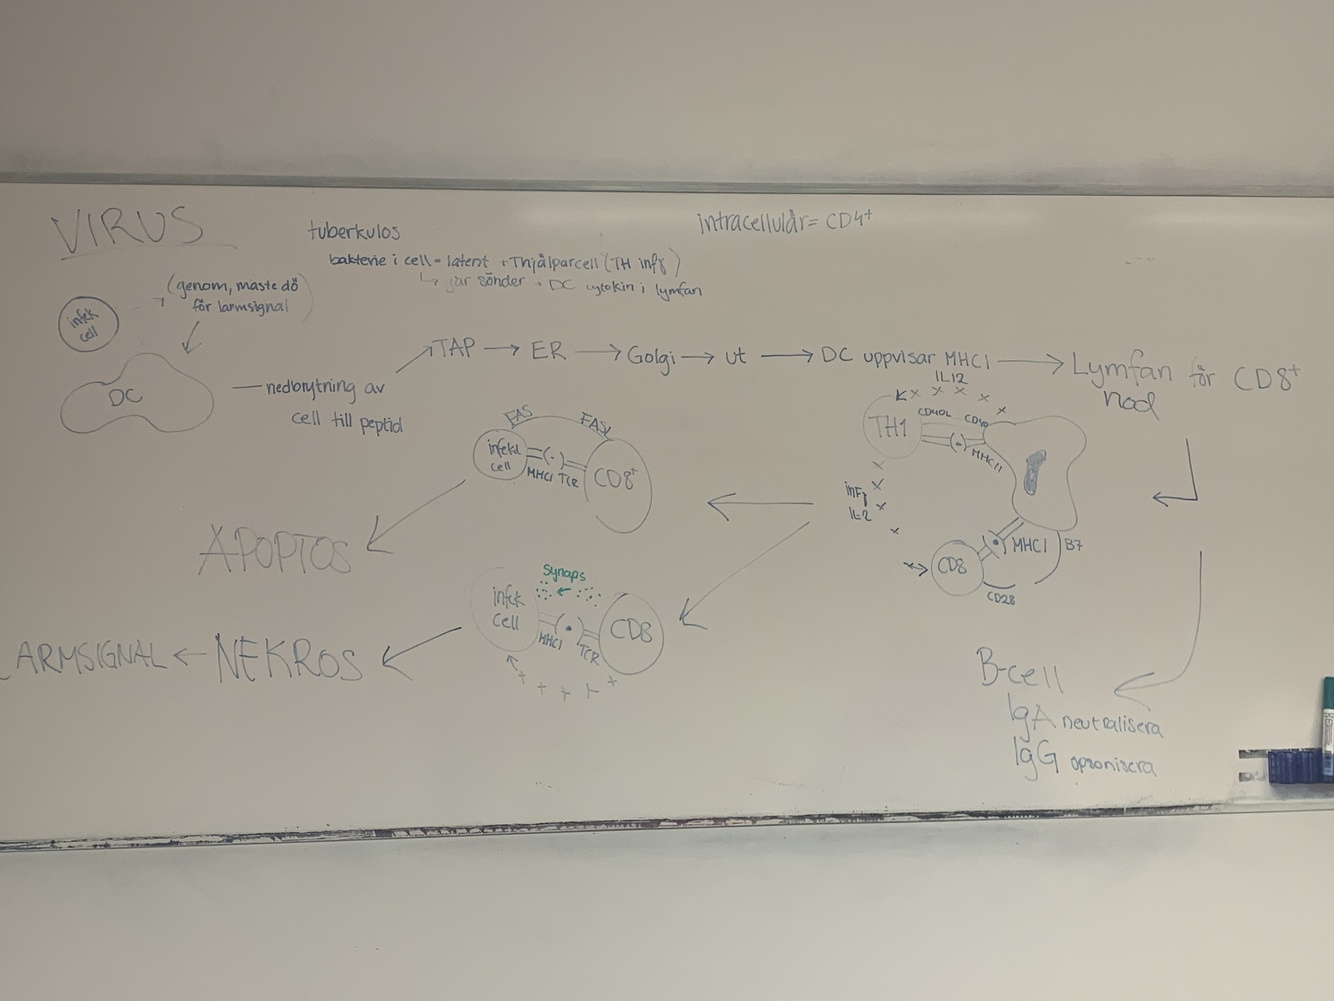 VIRUS
tuberkulos
intracellulär = CD4+
bakterie i cell - latent + Thjälparcell (TH infγ)
går sönder + DC cytokin i lymfan
(genom, måste dö
för larmsignal)
infek
cell
DC
nedbrytning av
cell till peptid
TAP → ER → Golgi → ut → DC uppvisar MHC1 → Lymfan för CD8+
nod
IL12
TH1
CD40L CD40
MHCII
infγ
IL-2
CD8
MHC1
B7
CD28
FAS
FASL
infekt
cell
MHC1 TCR
CD8+
APOPTOS
synaps
infek
cell
MHC1
TCR
CD8
ARMSIGNAL ← NEKROS
B-cell
IgA neutralisera
IgG opsonisera